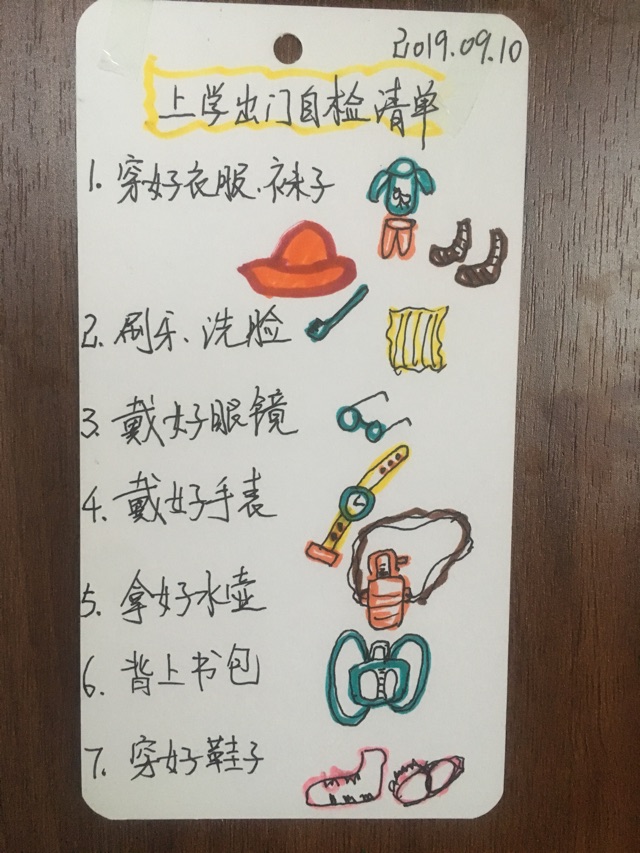 2019.09.10
上学出门自检清单
1. 穿好衣服、袜子
2. 刷牙、洗脸
3. 戴好眼镜
4. 戴好手表
5. 拿好水壶
6. 背上书包
7. 穿好鞋子